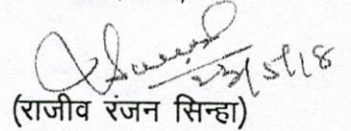 23/5/18
(राजीव रंजन सिन्हा)